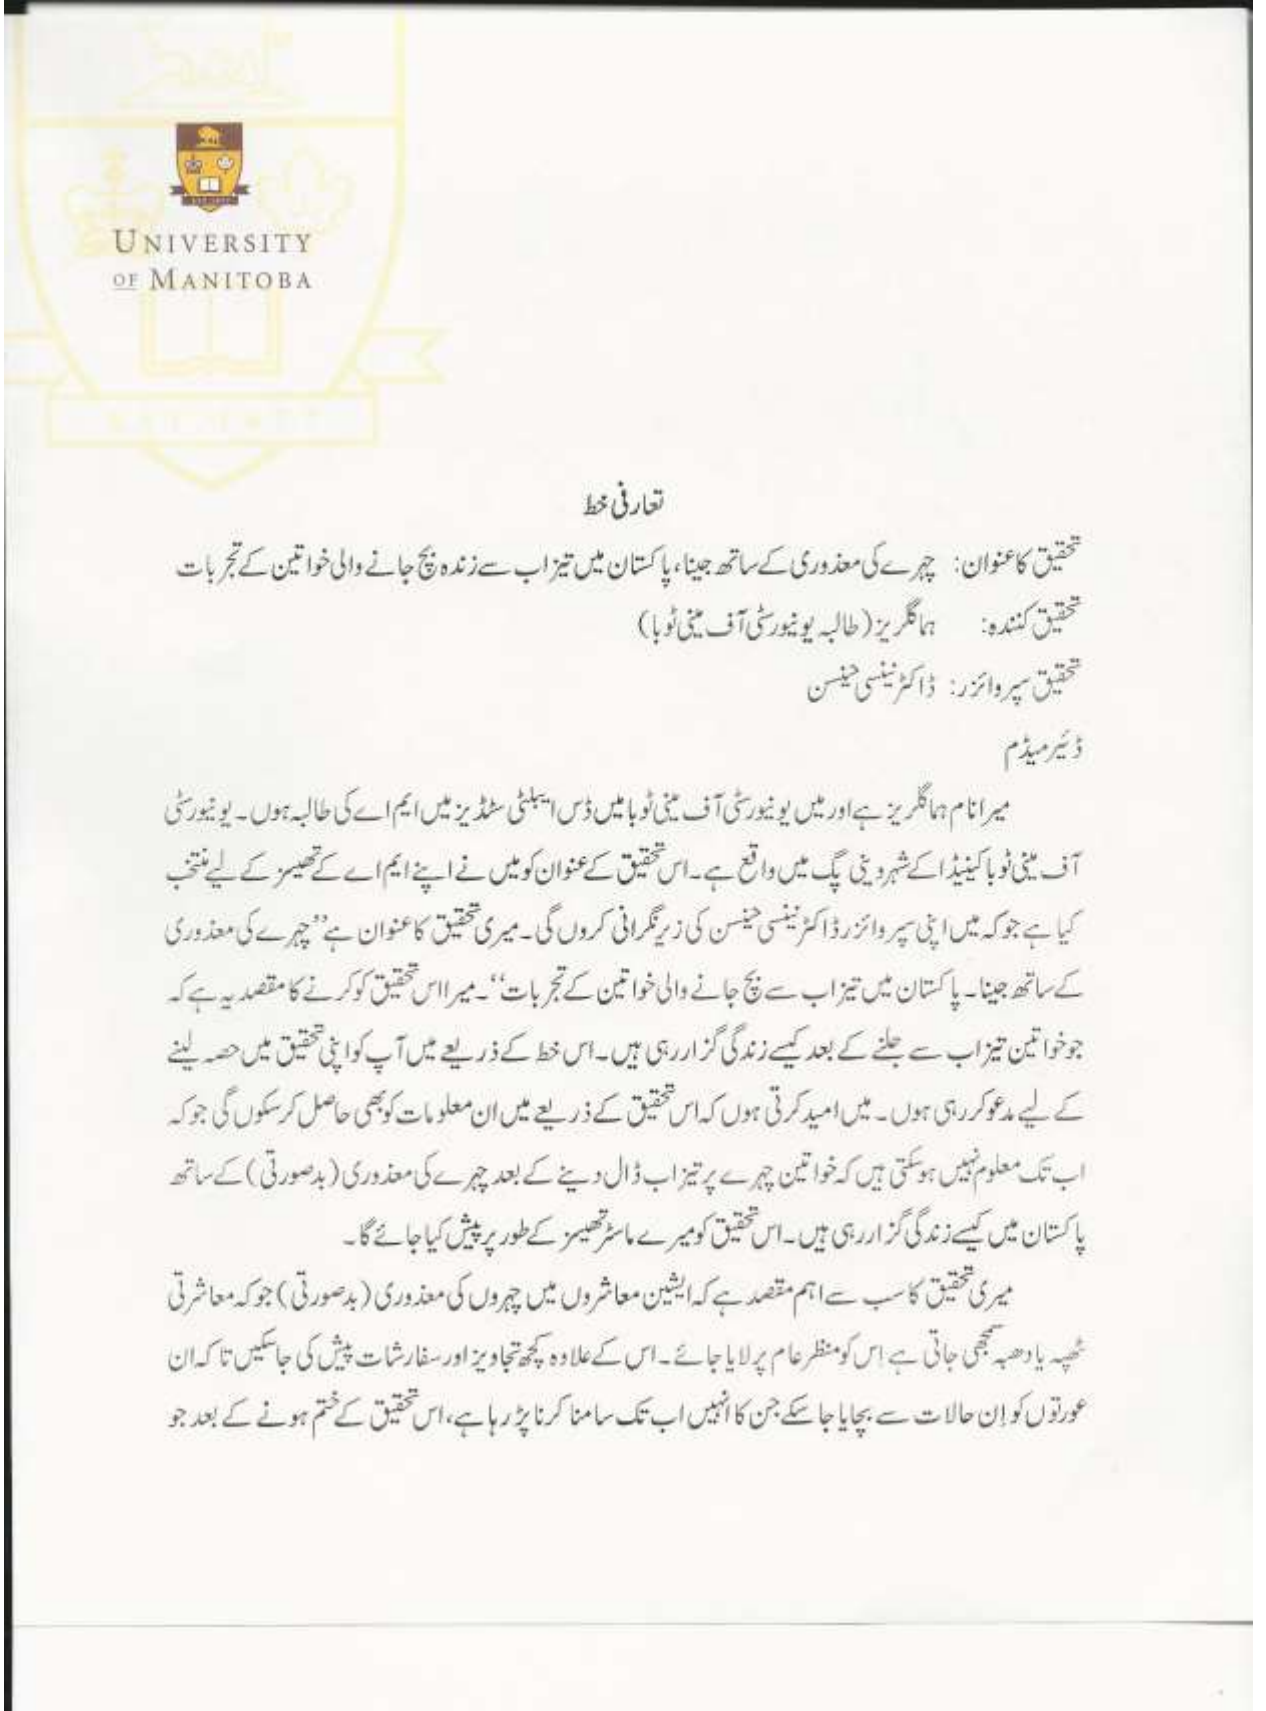 UNIVERSITY
OF MANITOBA
تعارفی خط
تحقیق کا عنوان: چہرے کی معذوری کے ساتھ جینا، پاکستان میں تیزاب سے زندہ بچ جانے والی خواتین کے تجربات
تحقیق کنندہ: ہما گلریز (طالبہ یونیورسٹی آف مینی ٹوبا)
تحقیق سپروائزر: ڈاکٹر نینسی ہینسن
ڈئیر میڈم
میرا نام ہما گلریز ہے اور میں یونیورسٹی آف مینی ٹوبا میں ڈس ایبلٹی سٹڈیز میں ایم اے کی طالبہ ہوں۔ یونیورسٹی
آف مینی ٹوبا کینیڈا کے شہر وینی پگ میں واقع ہے۔ اس تحقیق کے عنوان کو میں نے اپنے ایم اے کے تھیسز کے لیے منتخب
کیا ہے جو کہ میں اپنی سپروائزر ڈاکٹر نینسی ہینسن کی زیرِ نگرانی کروں گی۔ میری تحقیق کا عنوان ہے ’’چہرے کی معذوری
کے ساتھ جینا۔ پاکستان میں تیزاب سے بچ جانے والی خواتین کے تجربات‘‘۔ میرا اس تحقیق کو کرنے کا مقصد یہ ہے کہ
جو خواتین تیزاب سے جلنے کے بعد کیسے زندگی گزار رہی ہیں۔ اس خط کے ذریعے میں آپ کو اپنی تحقیق میں حصہ لینے
کے لیے مدعو کر رہی ہوں۔ میں امید کرتی ہوں کہ اس تحقیق کے ذریعے میں ان معلومات کو بھی حاصل کر سکوں گی جو کہ
اب تک معلوم نہیں ہو سکتی ہیں کہ خواتین چہرے پر تیزاب ڈال دینے کے بعد چہرے کی معذوری (بدصورتی) کے ساتھ
پاکستان میں کیسے زندگی گزار رہی ہیں۔ اس تحقیق کو میرے ماسٹر تھیسز کے طور پر پیش کیا جائے گا۔
میری تحقیق کا سب سے اہم مقصد ہے کہ ایشین معاشروں میں چہروں کی معذوری (بدصورتی) جو کہ معاشرتی
ٹھپہ یا دھبہ سمجھی جاتی ہے اِس کو منظر عام پر لایا جائے۔ اس کے علاوہ کچھ تجاویز اور سفارشات پیش کی جاسکیں تا کہ ان
عورتوں کو اِن حالات سے بچایا جا سکے جن کا انہیں اب تک سامنا کرنا پڑ رہا ہے، اس تحقیق کے ختم ہونے کے بعد جو